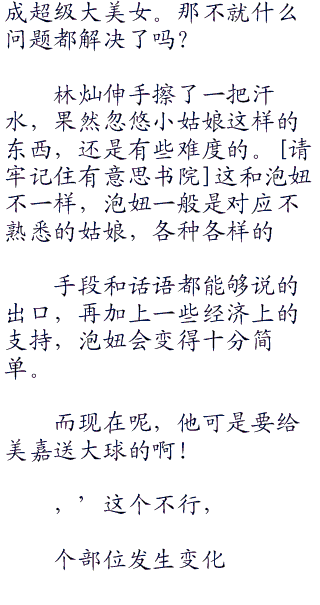 成超级大美女。那不就什么
问题都解决了吗？
林灿伸手擦了一把汗
水，果然忽悠小姑娘这样的
东西，还是有些难度的。[请
牢记住有意思书院]这和泡妞
不一样，泡妞一般是对应不
熟悉的姑娘，各种各样的
手段和话语都能够说的
出口，再加上一些经济上的
支持，泡妞会变得十分简
单。
而现在呢，他可是要给
美嘉送大球的啊！
，’这个不行，
个部位发生变化